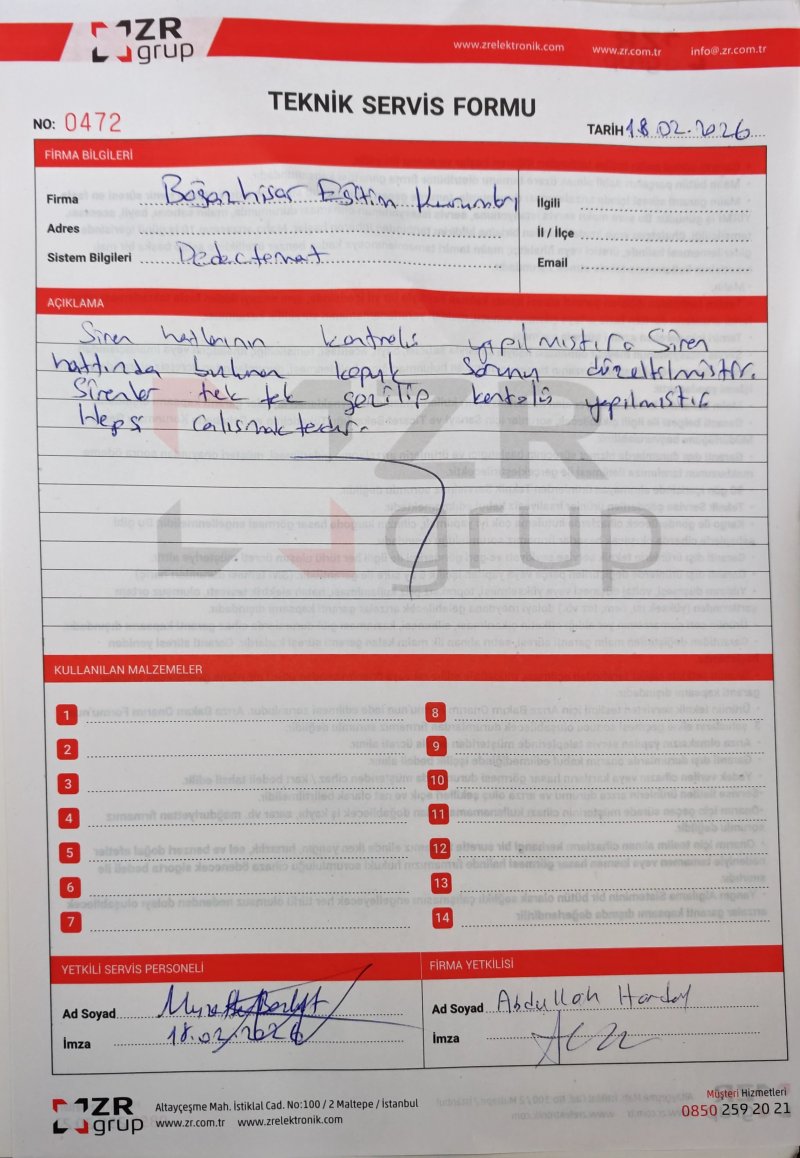 ZR grup
www.zrelektronik.com www.zr.com.tr info@.zr.com.tr
TEKNİK SERVİS FORMU
NO: 0472
TARİH 18.02.2026
FİRMA BİLGİLERİ
Firma Boğazhisar Eğitim Kurumları
Adres
Sistem Bilgileri Dedectemat
İlgili
İl / İlçe
Email
AÇIKLAMA
Siren hatlarının kontrolü yapılmıştır. Siren
hattında bulunan kopuk sorunu düzeltilmiştir.
Sirenler tek tek gezilip kontrolü yapılmıştır.
Hepsi çalışmaktadır.
ZR grup
KULLANILAN MALZEMELER
1
2
3
4
5
6
7
8
9
10
11
12
13
14
YETKİLİ SERVİS PERSONELİ
Ad Soyad
İmza 18.02.2026
FİRMA YETKİLİSİ
Ad Soyad Abdullah
İmza
ZR grup
Altayçeşme Mah. İstiklal Cad. No:100 / 2 Maltepe / İstanbul
www.zr.com.tr www.zrelektronik.com
Müşteri Hizmetleri
0850 259 20 21